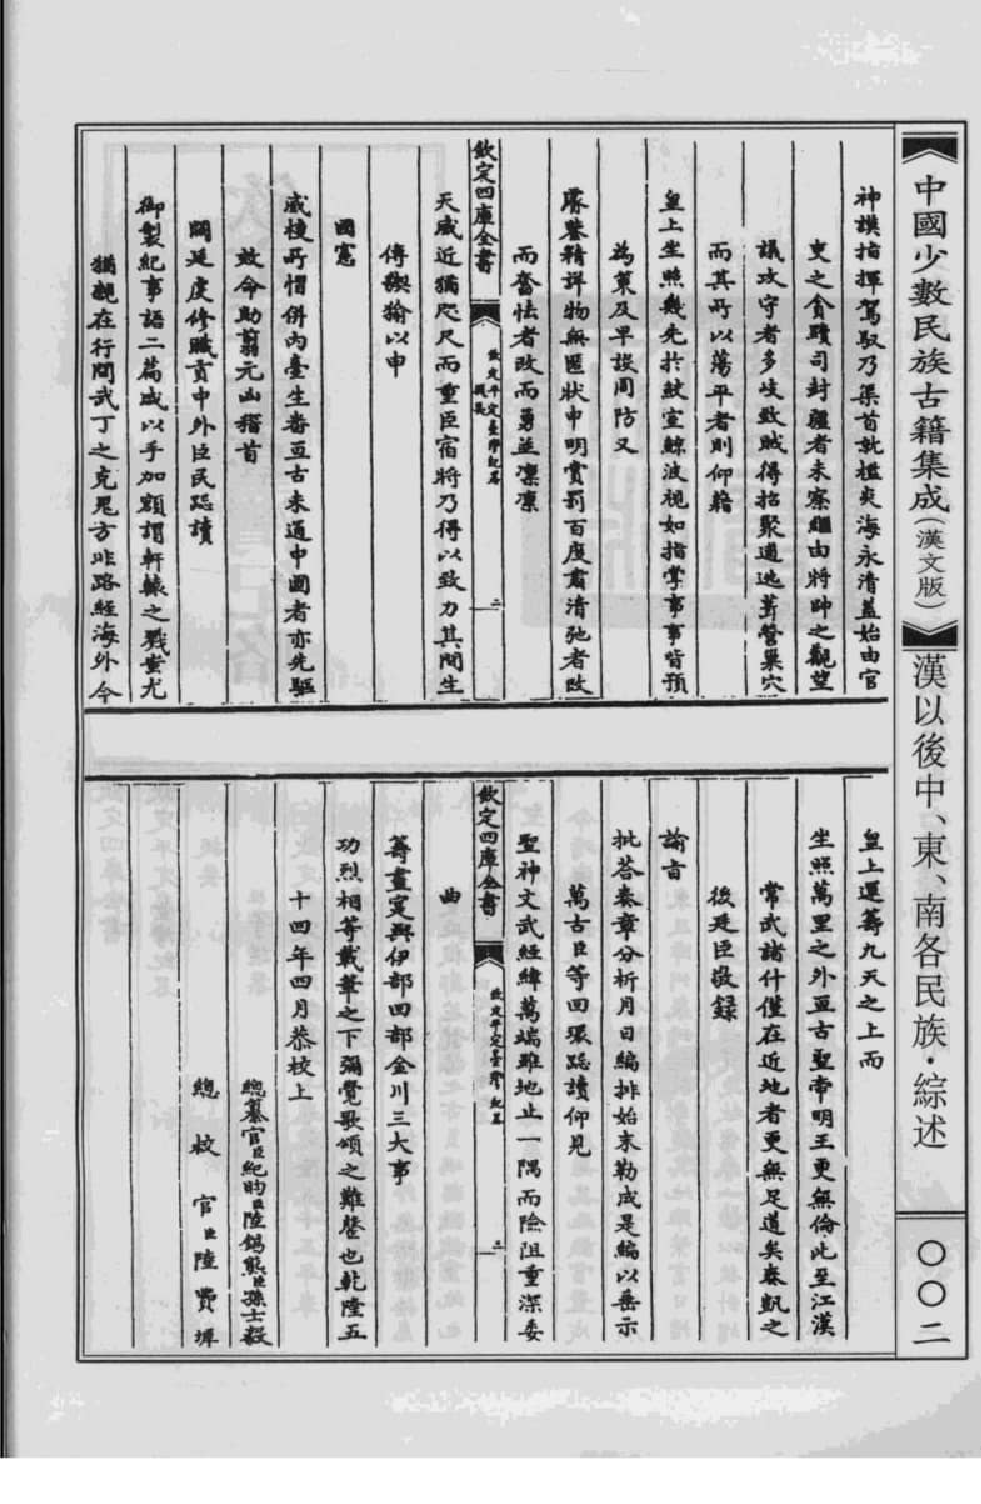 中國少數民族古籍集成(漢文版)
漢以後中、東、南各民族·綜述
〇〇二
神謨指揮駕馭乃渠首就檻爽海永清蓋始由官
吏之貪黷司封疆者未察繼由將帥之觀望
議攻守者多岐致賊得招聚逋逃葺營巢穴
而其所以蕩平者則仰藉
皇上坐照幾先於鮫室鯨波視如指掌事事皆預
為策及早設周防又
賡鑒精詳物無匿狀申明賞罰百度肅清弛者改
而奮怯者改而勇並凜凜
欽定四庫全書
欽定平定臺灣紀畧
提要
二
天威近猶咫尺而重臣宿將乃得以致力其間生
俘檄獻以申
國憲
威稜所慴併內臺生番亙古未通中國者亦先驅
效命助翦元凶稽首
闕廷虔修職貢中外臣民跽讀
御製紀事語二篇咸以手加額謂軒轅之戮蚩尤
猶親在行間武丁之克鬼方非路經海外今
皇上運籌九天之上而
坐照萬里之外亘古聖帝明王更無倫比至江漢
常武諸什僅在近地者更無足道矣奏凱之
後廷臣敬録
諭旨
批答奏章分析月日編排始末勒成是編以垂示
萬古臣等回環跽讀仰見
聖神文武經緯萬端雖地止一隅而險阻重深委
欽定四庫全書
欽定平定臺灣紀畧
三
曲
籌畫寔與伊部回部金川三大事
功烈相等載筆之下彌覺歌頌之難罄也乾隆五
十四年四月恭校上
總纂官臣紀昀臣陸錫熊臣孫士毅
總校官臣陸費墀